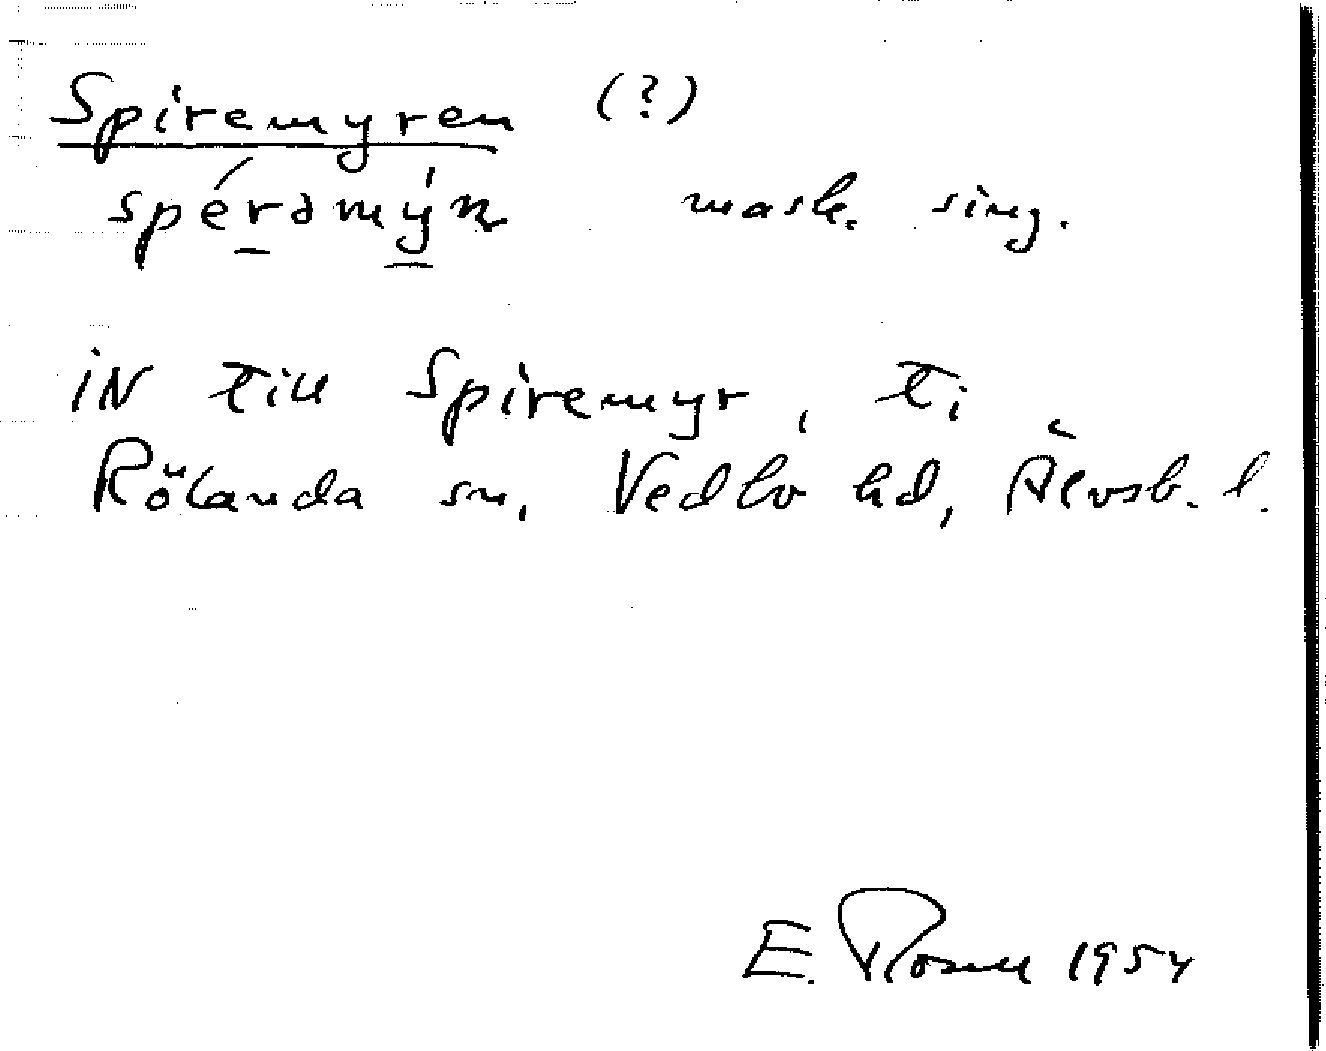 Spiremyren (?)
spérəmýn mask. sing.
iN till Spiremyr, ti
Rölanda sn, Vedbo hd, Älvsb. l.
E. 1954